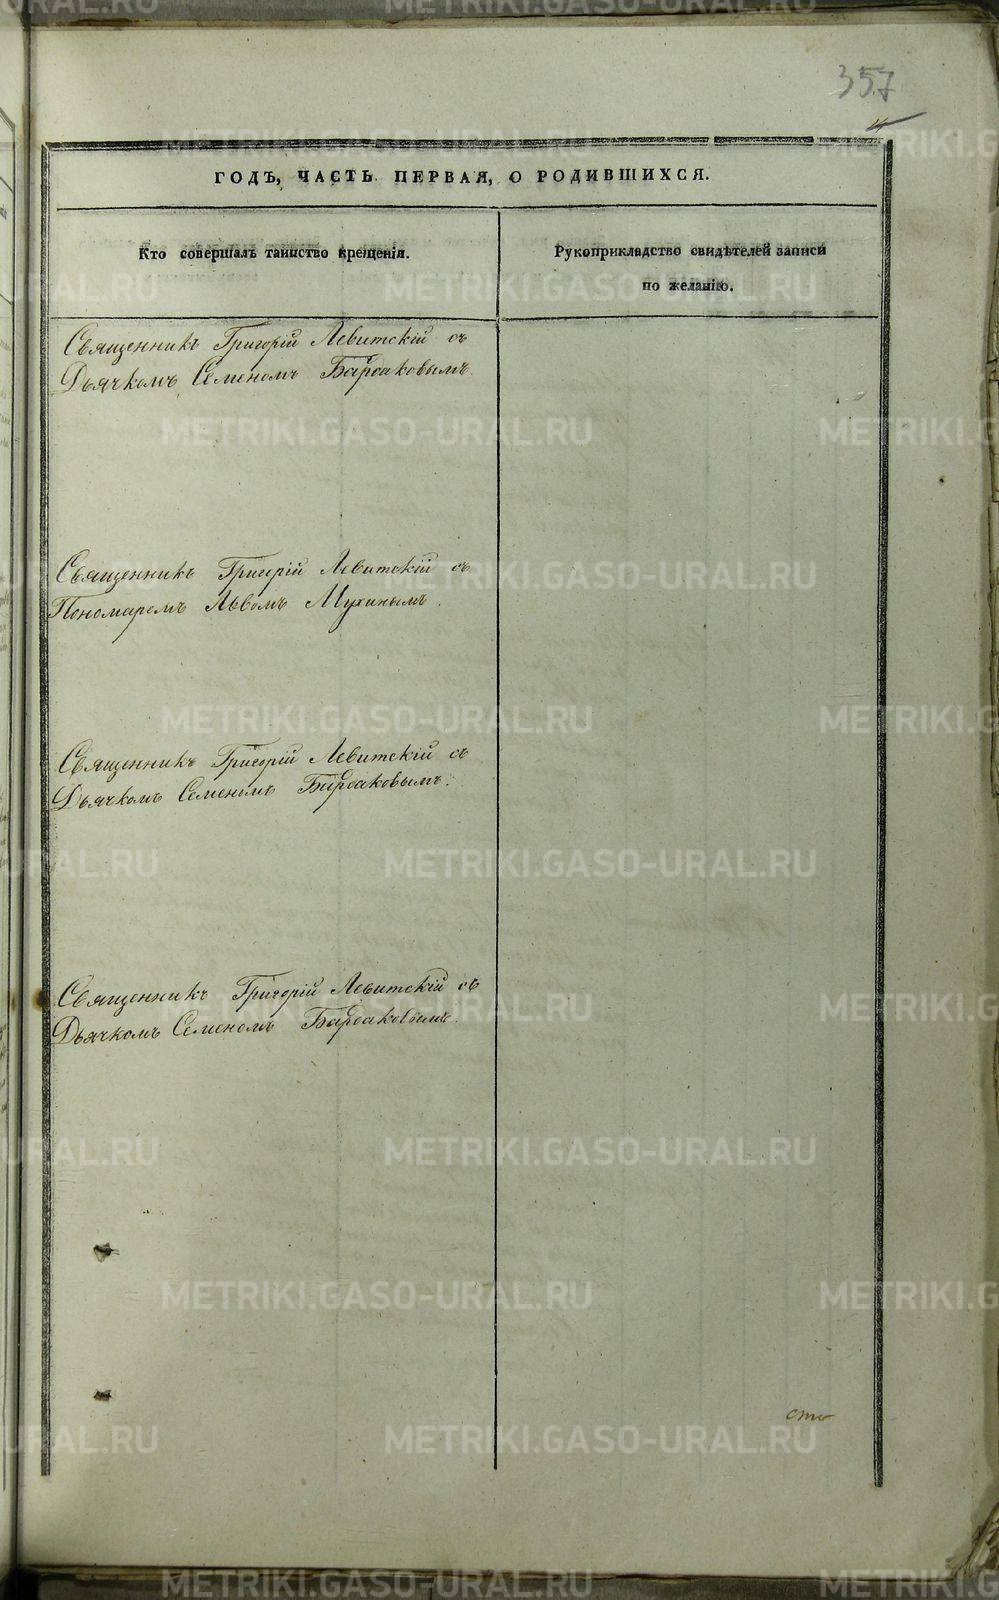 357
ГОДЪ, ЧАСТЬ ПЕРВАЯ, О РОДИВШИХСЯ.
Кто совершалъ таинство крещенія.
Рукоприкладство свидѣтелей записи
по желанію.
Священникъ Григорій Левитскій съ
Дьячкомъ Семеномъ Барсаковымъ.
Священникъ Григорій Левитскій съ
Пономаремъ Львомъ Мухинымъ.
Священникъ Григорій Левитскій съ
Дьячкомъ Семеномъ Барсаковымъ.
Священникъ Григорій Левитскій съ
Дьячкомъ Семеномъ Барсаковымъ.
METRIKI.GASO-URAL.RU